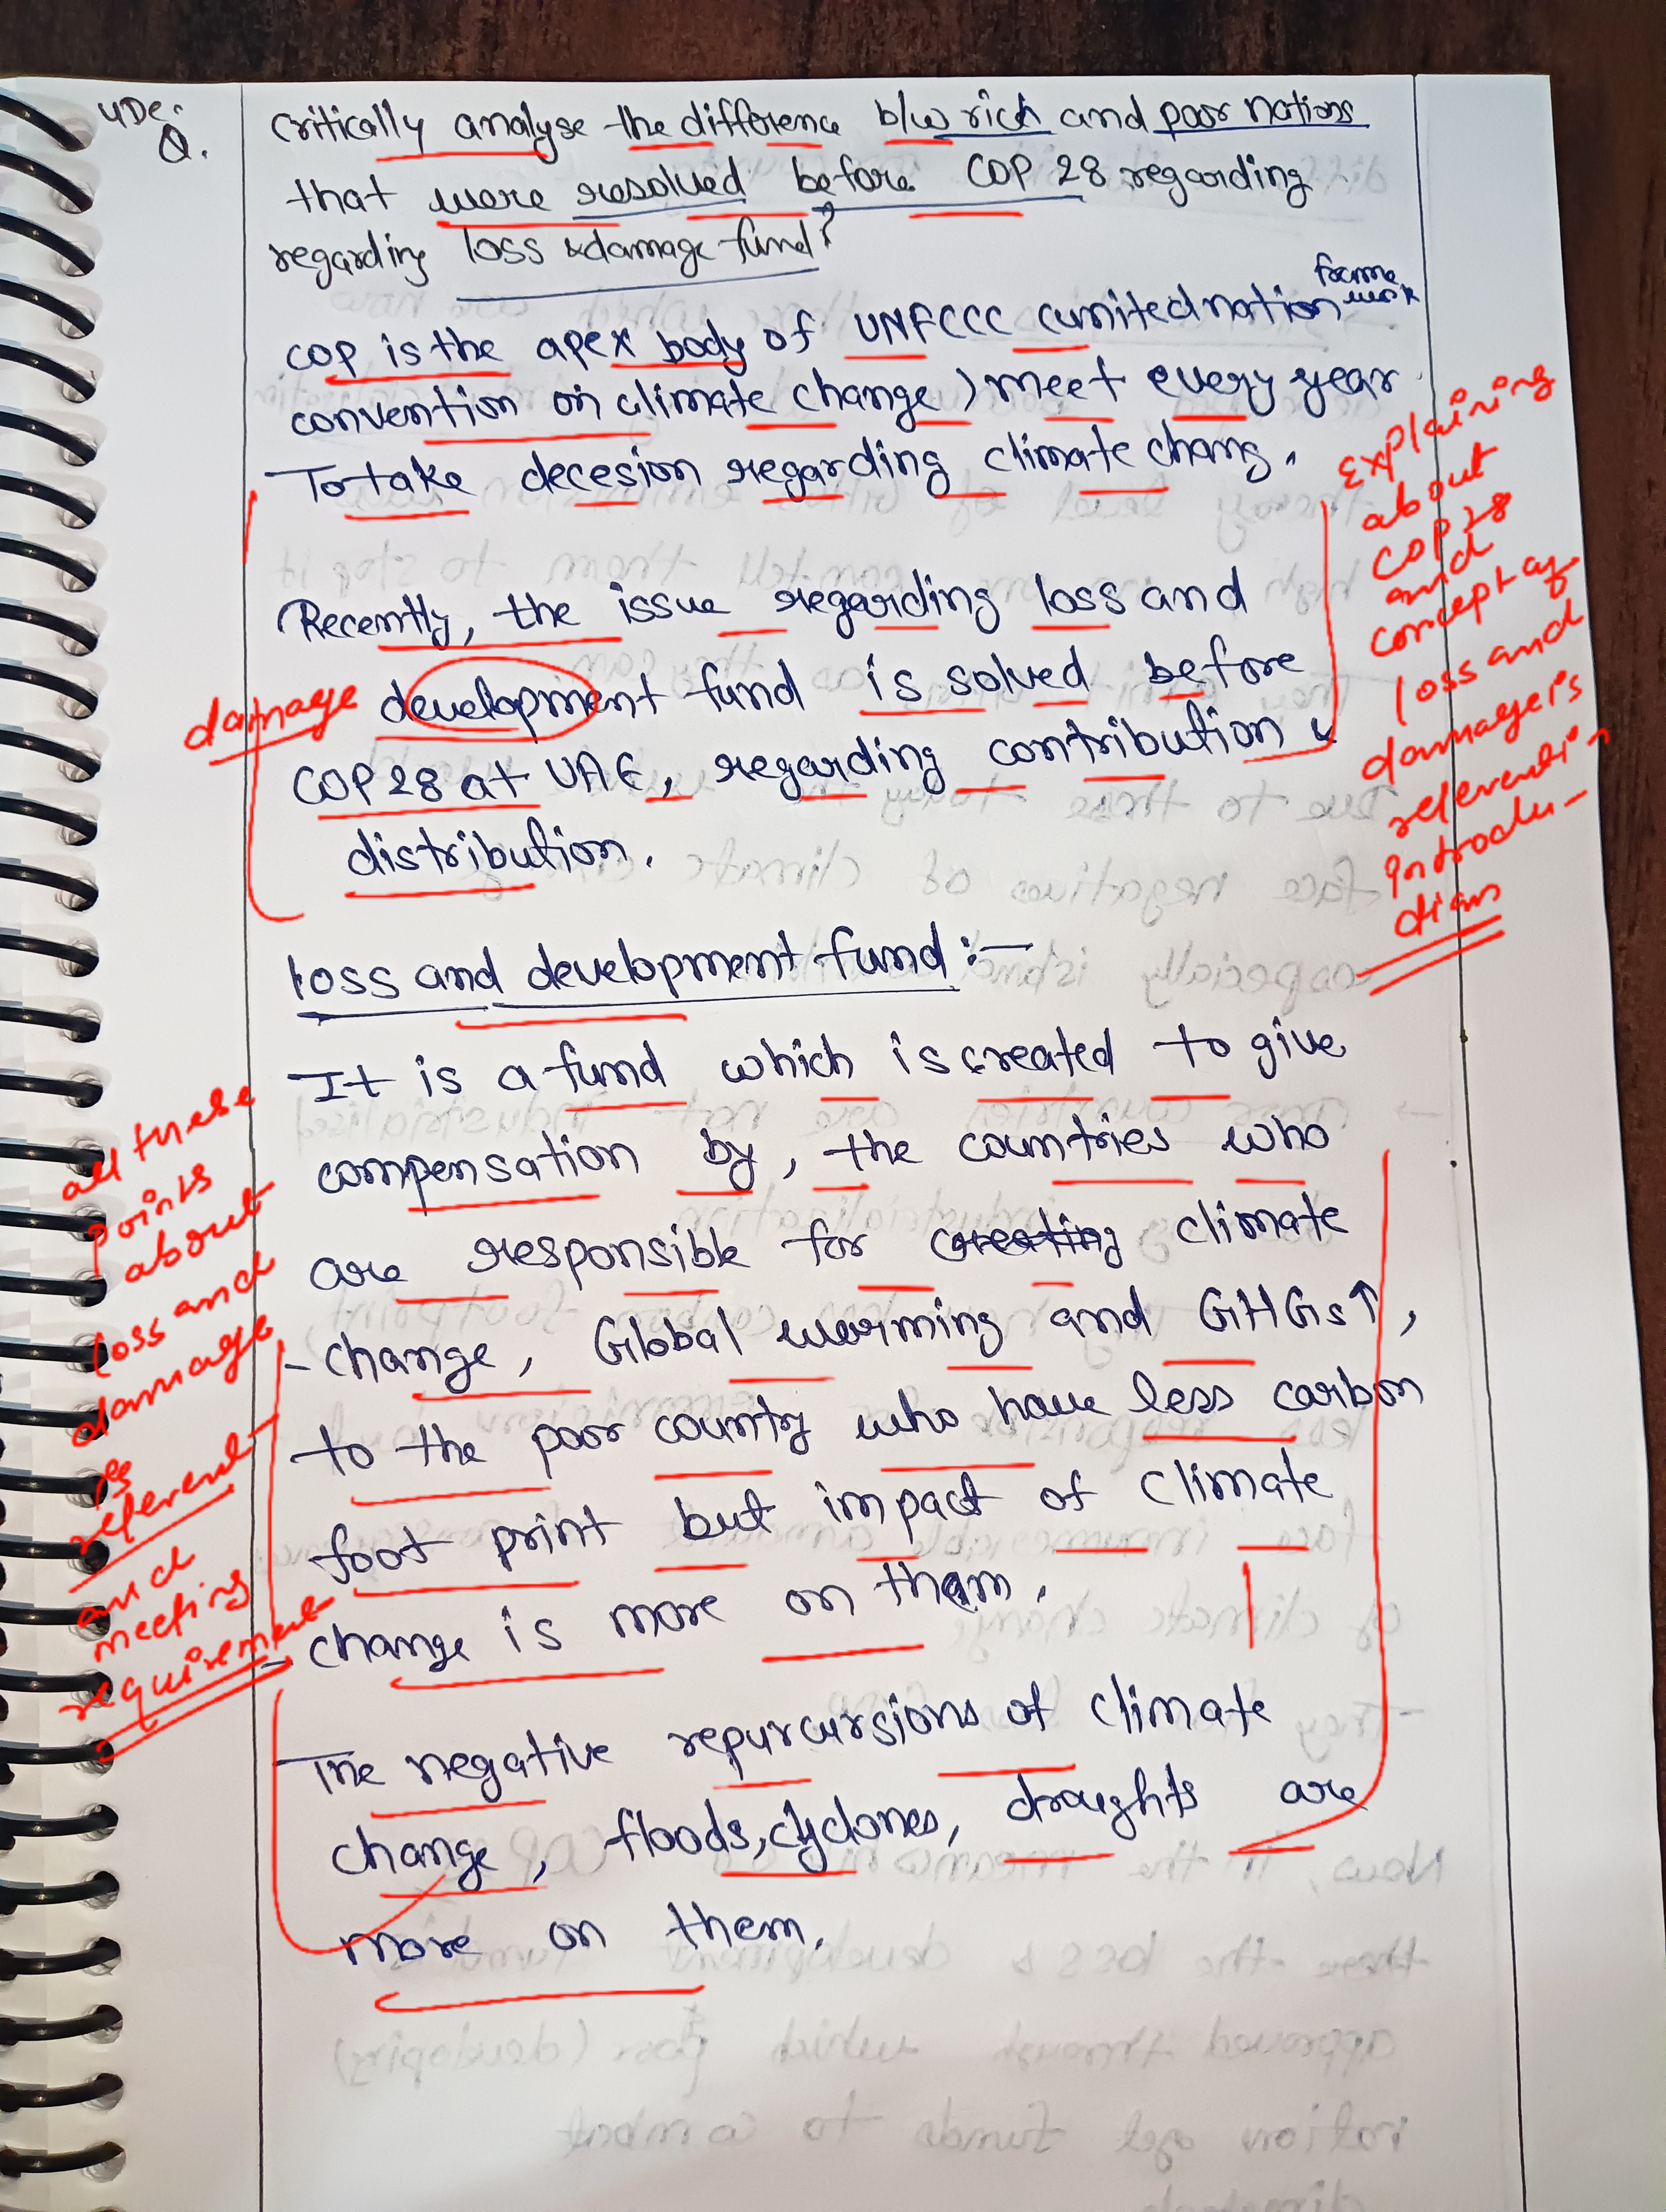 4 Dec.
Q. Critically analyse the difference b/w rich and poor nations
that were resolved before COP 28 regarding
regarding loss & damage fund?
COP is the apex body of UNFCCC (united nation frame work
convention on climate change) meet every year
To take decesion regarding climate chang.
Recently, the issue regarding loss and
development fund is solved before
COP 28 at UAE, regarding contribution &
distribution.
damage
Explaining
about
COP 28
and
concept of
loss and
damage is
relevent in
introdu-
ction
loss and development fund :-
It is a fund which is created to give
compensation by, the countries who
are responsible for creating climate
change, Global warming and GHGs↑,
to the poor country who have less carbon
foot print but impact of climate
change is more on them.
The negative repurcursions of climate
change, floods, cyclones, draughts are
more on them.
all these
points
about
loss and
damage
is
relevent
and
meeting
requirement